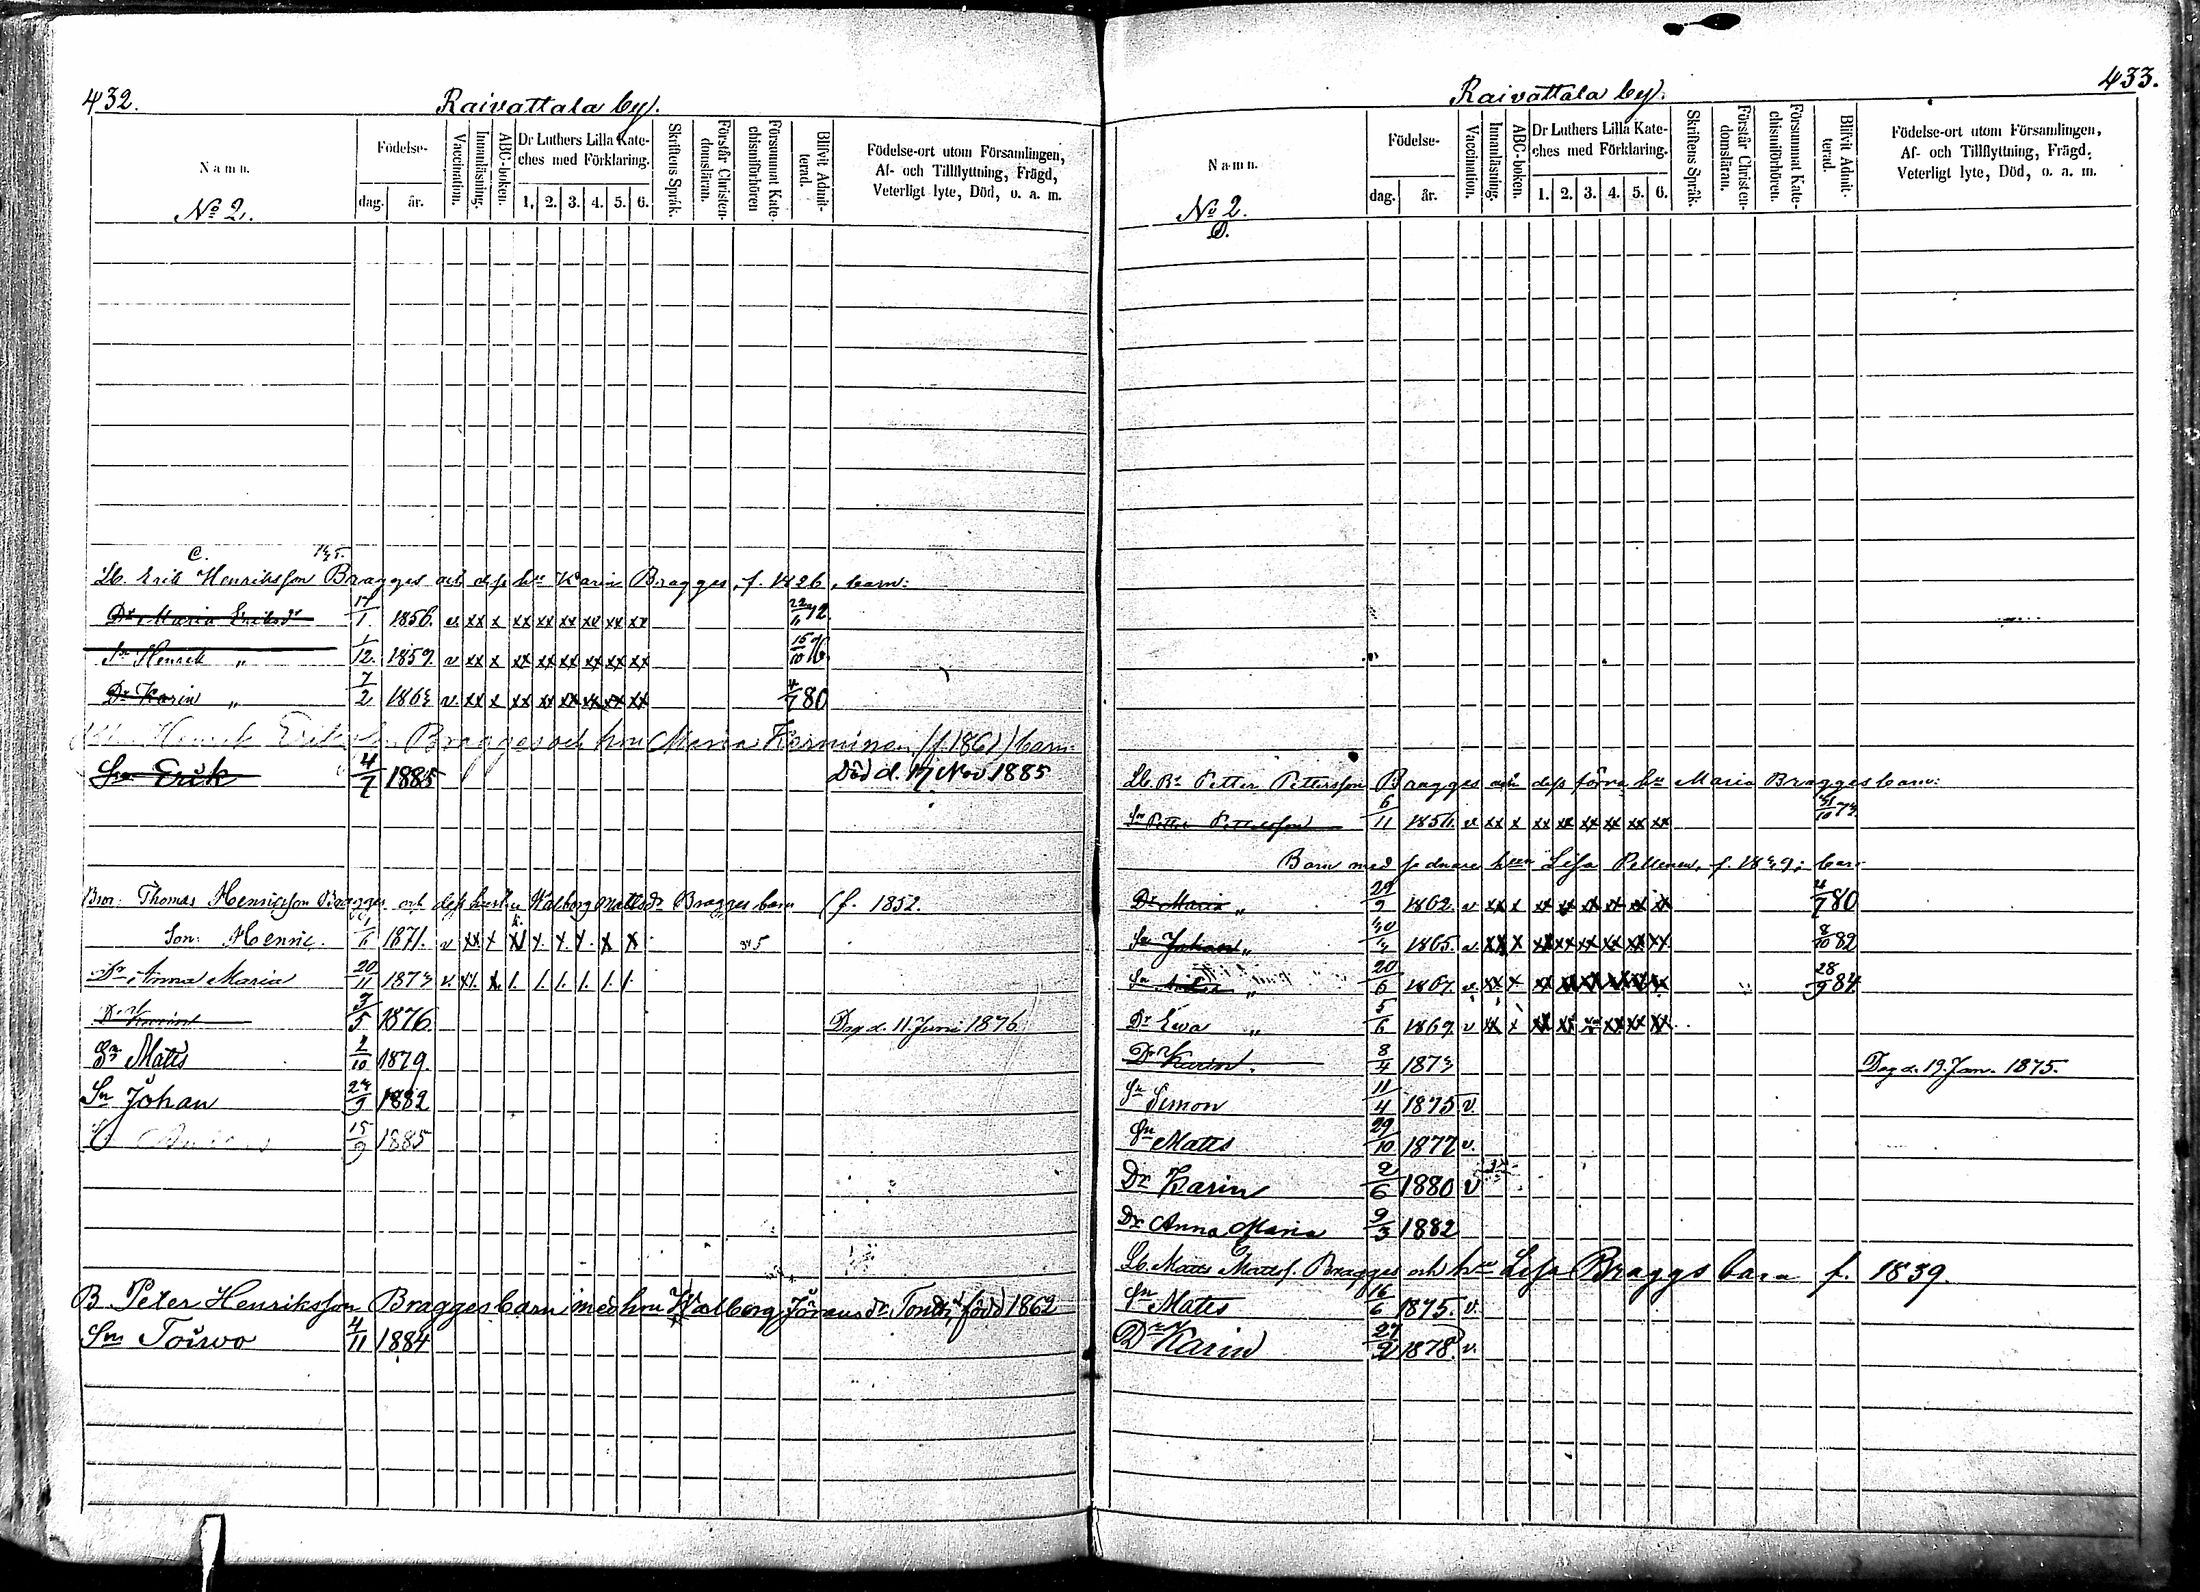 432.
Raivattala by.
Namn.
Födelse-
dag.
år.
Vaccination.
Innanläsning.
ABC-boken.
Dr Luthers Lilla Kate-
ches med Förklaring.
1. 2. 3. 4. 5. 6.
Skriftens Språk.
Förstår Christen-
domsläran.
Försummat Kate-
chismiförhören
Blifvit Admit-
terad.
Födelse-ort utom Församlingen,
Af- och Tillflyttning, Frägd,
Veterligt lyte, Död, o. a. m.
No 2.
C.
Lb. Erik Henriksson Bragges och dess hu Karin Bragges, f. 1826, barn:
Dr Maria Eriksdr 17/1 1856. v xx x xx xx xx xx xx xx 22/11 72.
Sn Henrik " 1/12. 1859. v xx x xx xx xx xx xx xx 15/10 76.
Dr Karin " 7/2 1863 v. xx x xx xx xx xx xx xx 4/7 80
Henrik Bragges och hru Maria Karminen (f. 1861) barn:
Sn Erik 4/7 1885 Död d. 17 Nov 1885
Bror: Thomas Henricsson Bragges och dess hustru Walborg Mattsdr Bragges barn (f. 1852.
Son: Henric. 1/6 1871. v xx x
Dr Anna Maria 20/11 1873 v.
Dr Karin 3/5 1876 Dog d. 11. Juni 1876
Sn Matts 2/10 1879.
Sn Johan 23/9 1882
15/9 1885
B. Peter Henriksson Bragges barn med hru Walborg Jöransdr Tondi, född 1862
Sn Toiwo 4/11 1884
433.
Raivattala by.
Namn.
Födelse-
dag.
år.
Vaccination.
Innanläsning.
ABC-boken.
Dr Luthers Lilla Kate-
ches med Förklaring.
1. 2. 3. 4. 5. 6.
Skriftens Språk.
Förstår Christen-
domsläran.
Försummat Kate-
chismiförhören.
Blifvit Admit-
terad.
Födelse-ort utom Församlingen,
Af- och Tillflyttning, Frägd,
Veterligt lyte, Död, o. a. m.
No 2.
D.
Lb. Br Petter Pettersson Bragges och dess förra hu Maria Bragges barn:
Sn Petter Pettersson 6/11 1856. v xx x xx xx xx xx xx xx
Barn med sednare hun Lisa Pellinen, f. 1839; barn
Dr Maria " 29/9 1862. v xx x xx xx xx xx xx xx 4/7 80
Sn Johan " 1865. v xx x xx xx xx xx xx xx 8/10 82
Sn " 20/6 1867. v. xx x xx xx xx xx xx xx 28/9 84
Dr Ewa " 5/6 1869. v xx x xx xx xx xx xx xx
Dr Karin. 8/4 1873 Dog d. 19. Jan. 1875.
Sn Simon 11/4 1875 v.
Sn Matts 29/10 1877 v.
Dr Karin 2/6 1880 v
Dr Anna Maria 9/3 1882
Lb. Matts Mattss. Bragges och hru Lisa Braggs barn f. 1839.
Sn Matts 16/6 1875. v.
Dr Karin 27/2 1878. v.